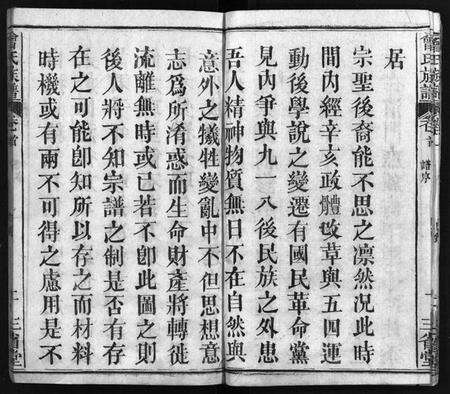 曾氏族譜 卷首 譜序 三省堂
居
宗聖後裔能不思之凛然况此時
間內經辛亥政體改草與五四運
動後學說之變遷有國民革命黨
見內爭與九一八後民族之外患
吾人精神物質無日不在自然與
意外之犧牲變亂中不但思想意
志爲所淆惑而生命財產將轉徙
流離無時或已若不卽此圖之則
後人將不知宗譜之制是否有存
在之可能卽知所以存之而材料
時機或有兩不可得之慮用是不
曾氏族譜 卷首 三省堂